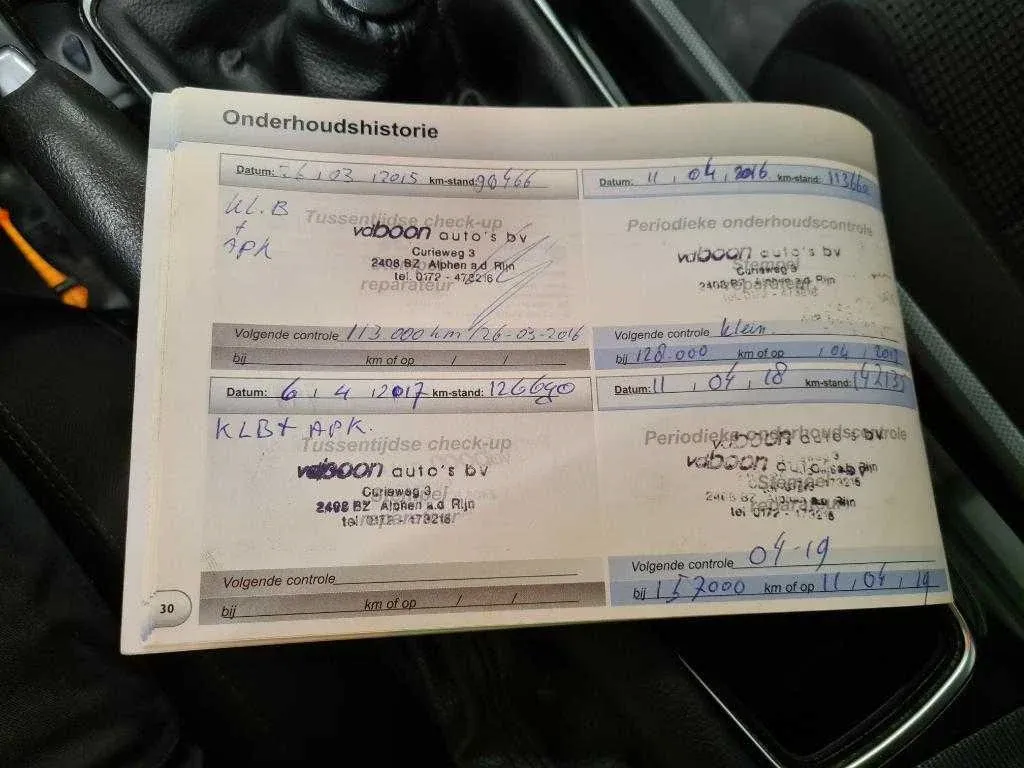 Onderhoudshistorie
Datum: 26, 03, 2015 km-stand: 90466
KL.B
+
APK
Tussentijdse check-up
vdboon auto's bv
Curieweg 3
2408 BZ Alphen a.d. Rijn
tel. 0172 - 473216
reparateur
Volgende controle 113.000 km / 26-03-2016
bij km of op / /
Datum: 11, 04, 2016 km-stand:
Periodieke onderhoudscontrole
vdboon auto's bv
Stempel
Curieweg 3
2408 BZ Alphen a.d. Rijn
reparateur
tel. 0172 - 473216
Volgende controle klein.
bij 128.000 km of op , 04,
Datum: 6, 4, 2017 km-stand: 126690
KLB + APK.
Tussentijdse check-up
vdboon auto's bv
Curieweg 3
Stempel
2408 BZ Alphen a.d. Rijn
reparateur
tel. 0172 - 473216
Volgende controle
bij km of op / /
Datum: 11, 04, 18 km-stand:
Periodieke onderhoudscontrole
vdboon auto's bv
vdboon auto's bv
Stempel
2408 BZ
reparateur
tel. 0172 - 473216
Volgende controle 04-19
bij 157000 km of op 11, 04, 19
30